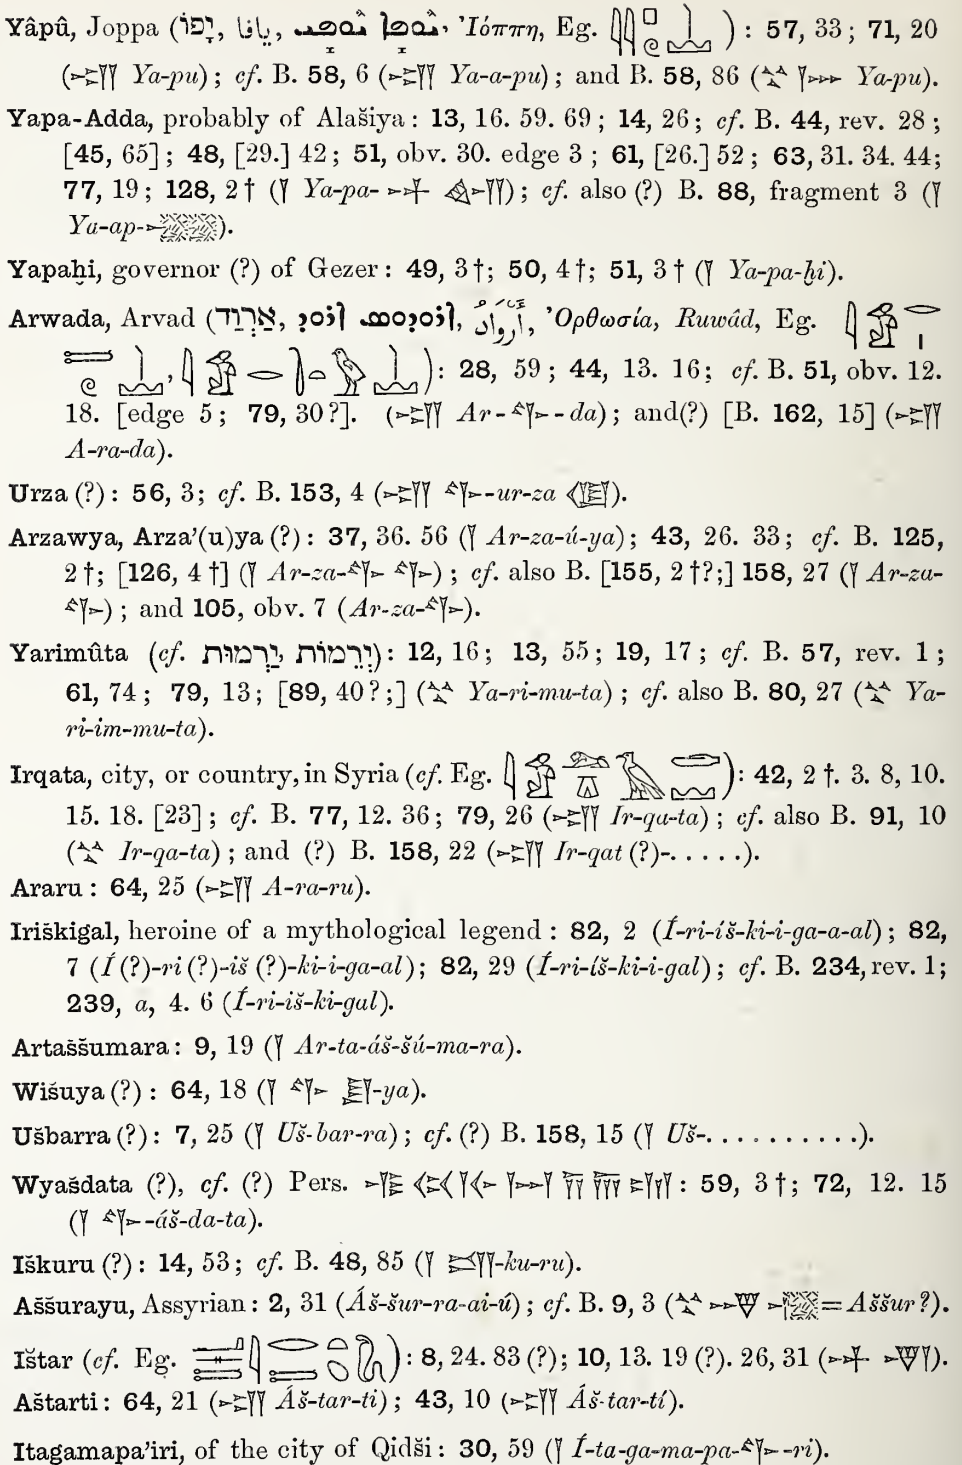 Yâpû, Joppa (יָפוֹ, يافا, ܝܘܦܐ ܝܘܦܝ, Ἰόππη, Eg. ) : 57, 33; 71, 20
(𒌷 Ya-pu); cf. B. 58, 6 (𒌷 Ya-a-pu); and B. 58, 86 (𒆳 Ya-pu).
Yapa-Adda, probably of Alašiya: 13, 16. 59. 69; 14, 26; cf. B. 44, rev. 28;
[45, 65]; 48, [29.] 42; 51, obv. 30. edge 3; 61, [26.] 52; 63, 31. 34. 44;
77, 19; 128, 2† (𒁹 Ya-pa- 𒀭 𒅎); cf. also (?) B. 88, fragment 3 (𒁹
Ya-ap- ).
Yapaḫi, governor (?) of Gezer: 49, 3†; 50, 4†; 51, 3† (𒁹 Ya-pa-ḫi).
Arwada, Arvad (אַרְוָד, Ὀρθωσία, Ruwâd, Eg.
): 28, 59; 44, 13. 16; cf. B. 51, obv. 12.
18. [edge 5; 79, 30?]. (𒌷 Ar-𒉿-da); and(?) [B. 162, 15] (𒌷
A-ra-da).
Urza (?): 56, 3; cf. B. 153, 4 (𒌷 𒉿-ur-za 𒆠).
Arzawya, Arza’(u)ya (?): 37, 36. 56 (𒁹 Ar-za-ú-ya); 43, 26. 33; cf. B. 125,
2†; [126, 4†] (𒁹 Ar-za-𒉿 𒉿); cf. also B. [155, 2†?;] 158, 27 (𒁹 Ar-za-
𒉿); and 105, obv. 7 (Ar-za-𒉿).
Yarimûta (cf. יְרֵמוֹת, יַרְמוּת): 12, 16; 13, 55; 19, 17; cf. B. 57, rev. 1;
61, 74; 79, 13; [89, 40?;] (𒆳 Ya-ri-mu-ta); cf. also B. 80, 27 (𒆳 Ya-
ri-im-mu-ta).
Irqata, city, or country, in Syria (cf. Eg. ): 42, 2†. 3. 8, 10.
15. 18. [23]; cf. B. 77, 12. 36; 79, 26 (𒌷 Ir-qa-ta); cf. also B. 91, 10
(𒆳 Ir-qa-ta); and (?) B. 158, 22 (𒌷 Ir-qat (?)-.....).
Araru: 64, 25 (𒌷 A-ra-ru).
Iriškigal, heroine of a mythological legend: 82, 2 (Í-ri-íš-ki-i-ga-a-al); 82,
7 (Í (?)-ri (?)-iš (?)-ki-i-ga-al); 82, 29 (Í-ri-íš-ki-i-gal); cf. B. 234, rev. 1;
239, a, 4. 6 (Í-ri-iš-ki-gal).
Artaššumara: 9, 19 (𒁹 Ar-ta-áš-šú-ma-ra).
Wišuya (?): 64, 18 (𒁹 𒉿 -ya).
Ušbarra (?): 7, 25 (𒁹 Uš-bar-ra); cf. (?) B. 158, 15 (𒁹 Uš-...........).
Wyašdata (?), cf. (?) Pers. : 59, 3†; 72, 12. 15
(𒁹 𒉿-áš-da-ta).
Iškuru (?): 14, 53; cf. B. 48, 85 (𒁹 -ku-ru).
Aššurayu, Assyrian: 2, 31 (Áš-šur-ra-ai-ú); cf. B. 9, 3 (𒆳 = Aššur?).
Ištar (cf. Eg. ): 8, 24. 83 (?); 10, 13. 19 (?). 26, 31 (𒀭 ).
Aštarti: 64, 21 (𒌷 Áš-tar-ti); 43, 10 (𒌷 Áš-tar-tí).
Itagamapa’iri, of the city of Qidši: 30, 59 (𒁹 Í-ta-ga-ma-pa-𒉿-ri).